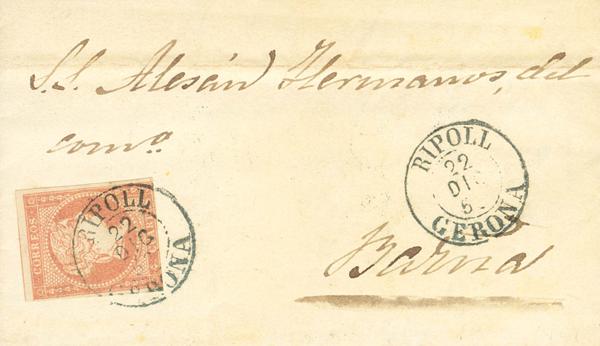 S.S. Alesán Hermanos, del
como
RIPOLL
22
DIC
5
GERONA
CORREOS
RIPOLL
22
DIC
GERONA
Barna